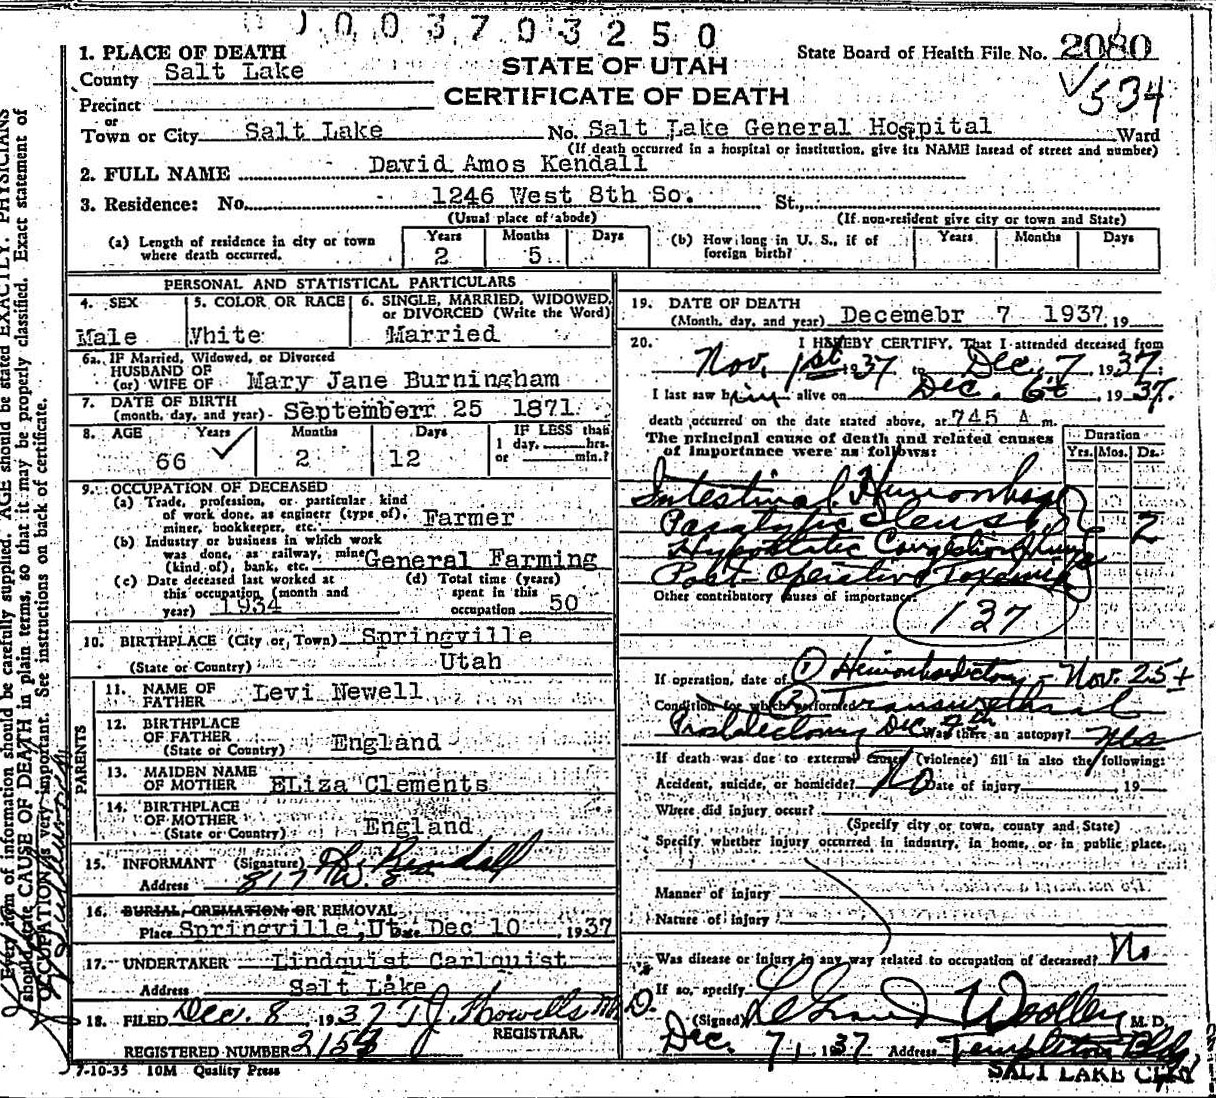 0 1 0 0 3 7 0 3 2 5 0
State Board of Health File No. 2080
√534
STATE OF UTAH
CERTIFICATE OF DEATH
1. PLACE OF DEATH
County Salt Lake
Precinct
or
Town or City Salt Lake No. Salt Lake General Hospital St. Ward
(If death occurred in a hospital or institution, give its NAME instead of street and number)
2. FULL NAME David Amos Kendall
3. Residence: No. 1246 West 8th So. St.,
(Usual place of abode) (If non-resident give city or town and State)
(a) Length of residence in city or town where death occurred. Years 2 Months 5 Days
(b) How long in U. S., if of foreign birth? Years Months Days
PERSONAL AND STATISTICAL PARTICULARS
4. SEX Male
5. COLOR OR RACE White
6. SINGLE, MARRIED, WIDOWED, or DIVORCED (Write the Word) Married
6a. IF Married, Widowed, or Divorced
HUSBAND OF
(or) WIFE OF Mary Jane Burningham
7. DATE OF BIRTH
(month, day, and year) - Septemberr 25 1871
8. AGE Years 66 Months 2 Days 12
IF LESS than 1 day, hrs. or min.?
9. OCCUPATION OF DECEASED
(a) Trade, profession, or particular kind
of work done, as engineer (type of),
miner, bookkeeper, etc. Farmer
(b) Industry or business in which work
was done, as railway, mine
(kind of), bank, etc. General Farming
(c) Date deceased last worked at
this occupation (month and
year) 1934
(d) Total time (years)
spent in this
occupation 50
10. BIRTHPLACE (City or Town) Springville
(State or Country) Utah
PARENTS
11. NAME OF FATHER Levi Newell
12. BIRTHPLACE OF FATHER
(State or Country) England
13. MAIDEN NAME OF MOTHER ELiza Clements
14. BIRTHPLACE OF MOTHER
(State or Country) England
15. INFORMANT (Signature) Kendall
Address 817 W. 8
16. BURIAL, CREMATION, OR REMOVAL
Place Springville, Ut. Date Dec 10, 1937
17. UNDERTAKER Lindquist Carlquist
Address Salt Lake
18. FILED Dec. 8 1937 T J Howells M.D.
REGISTRAR.
REGISTERED NUMBER
7-10-35 10M Quality Press
19. DATE OF DEATH
(Month, day, and year) Decemebr 7 1937, 19
20. I HEREBY CERTIFY, That I attended deceased from
Nov. 1st 1937 to Dec. 7, 1937.
I last saw him alive on Dec. 6th, 1937.
death occurred on the date stated above, at 745 A m.
The principal cause of death and related causes
of importance were as follows:
Duration
Yrs. Mos. Ds.
Intestinal Hemorrhage
Paralytic Ileus
Hypostatic Congestion Lungs
Post-Operative Toxemia
2
Other contributory causes of importance:
137
If operation, date of (1) Hemorrhoidectomy - Nov. 25th
Condition for which performed (2) Transurethral
Prostatectomy Dec 4th Was there an autopsy? Yes
If death was due to external causes (violence) fill in also the following:
Accident, suicide, or homicide? No Date of injury 19
Where did injury occur?
(Specify city or town, county and State)
Specify whether injury occurred in industry, in home, or in public place.
Manner of injury
Nature of injury
Was disease or injury in any way related to occupation of deceased? No
If so, specify
(Signed) LeGrand Woolley M. D.
Dec. 7, 1937 Address Templeton Bldg
SALT LAKE CITY
Every item of information should be carefully supplied. AGE should be stated EXACTLY. PHYSICIANS
should state CAUSE OF DEATH in plain terms, so that it may be properly classified. Exact statement of
OCCUPATION is very important. See instructions on back of certificate.